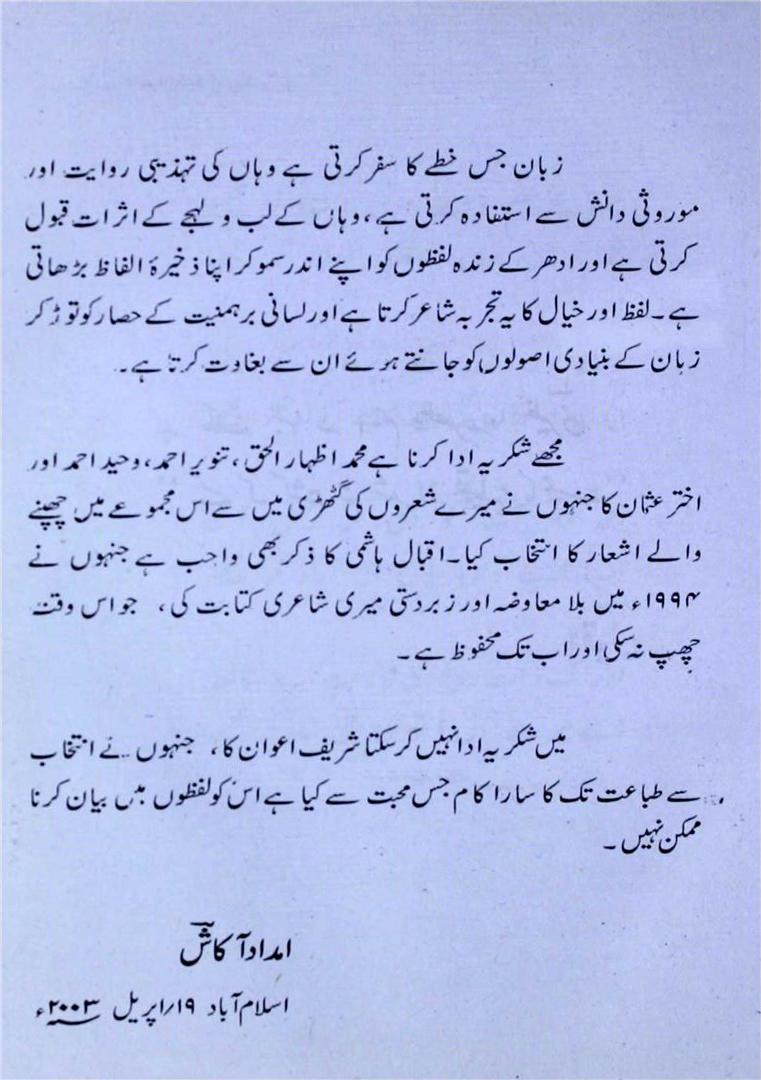 زبان جس خطے کا سفر کرتی ہے وہاں کی تہذیبی روایت اور
موروثی دانش سے استفادہ کرتی ہے، وہاں کے لب و لہجے کے اثرات قبول
کرتی ہے اور ادھر کے زندہ لفظوں کو اپنے اندر سمو کر اپنا ذخیرۂ الفاظ بڑھاتی
ہے۔ لفظ اور خیال کا یہ تجربہ شاعر کرتا ہے اور لسانی برہمنیت کے حصار کو توڑ کر
زبان کے بنیادی اصولوں کو جانتے ہوئے ان سے بغاوت کرتا ہے۔
مجھے شکریہ ادا کرنا ہے محمد اظہار الحق، تنویر احمد، وحید احمد اور
اختر عثمان کا جنہوں نے میرے شعروں کی گٹھڑی میں سے اس مجموعے میں چھپنے
والے اشعار کا انتخاب کیا۔ اقبال ہاشمی کا ذکر بھی واجب ہے جنہوں نے
۱۹۹۴ء میں بلا معاوضہ اور زبردستی میری شاعری کتابت کی، جو اس وقت
چھپ نہ سکی اور اب تک محفوظ ہے۔
میں شکریہ ادا نہیں کر سکتا شریف اعوان کا، جنہوں نے انتخاب
سے طباعت تک کا سارا کام جس محبت سے کیا ہے اس کو لفظوں میں بیان کرنا
ممکن نہیں۔
امداد آکاش
اسلام آباد ۱۹/اپریل ۲۰۰۳ء